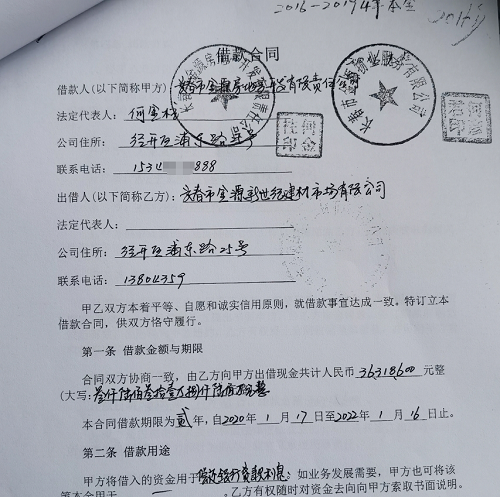 2016-2019年本金
借款合同
借款人(以下简称甲方):长春市金源房地产开发有限责任公司
法定代表人:
公司住所:经开区浦东路
联系电话:1534 888
出借人(以下简称乙方):长春市金源新世纪建材市场有限公司
法定代表人:
公司住所:经开区浦东路25号
联系电话:13804359
甲乙双方本着平等、自愿和诚实信用原则,就借款事宜达成一致。特订立本
借款合同,供双方恪守履行。
第一条 借款金额与期限
合同双方协商一致,由乙方向甲方出借现金共计人民币 36318600 元整
(大写:叁仟陆佰叁拾壹万捌仟陆佰元整
本合同借款期限为贰年,自2020年1月17日至2022年1月16日止。
第二条 借款用途
甲方将借入的资金用于偿还银行贷款利息。如业务发展需要,甲方也可将该
笔本金用于 。乙方有权随时对资金去向向甲方索取书面说明。